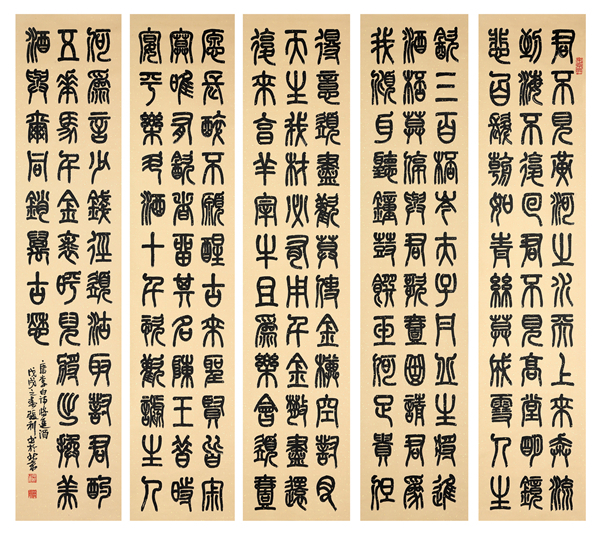 君不見黃河之水天上來奔流
到海不復回君不見高堂明鏡
悲白髮朝如青絲莫成雪人生
得意須盡歡莫使金樽空對月
天生我材必有用千金散盡還
復來烹羊宰牛且為樂會須壹
飲三百杯岑夫子丹丘生將進
酒杯莫停與君歌壹曲請君為
我傾耳聽鐘鼓饌玉何足貴但
愿長醉不願醒古來聖賢皆寂
寞唯有飲者留其名陳王昔時
宴平樂斗酒十千恣歡謔主人
何為言少錢徑須沽取對君酌
五華馬千金裘呼兒將出換美
酒與爾同銷萬古愁
唐李白詩將進酒
戊戌之春